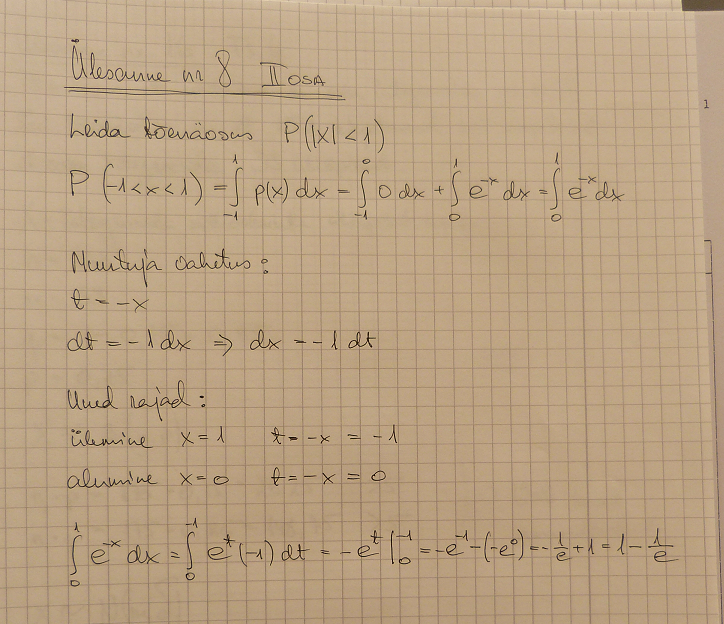 Ülesanne nr 8 II OSA
Leida tõenäosus P(|X| < 1)
P(-1 < x < 1) = ∫_{-1}^{1} p(x) dx = ∫_{-1}^{0} 0 dx + ∫_{0}^{1} e^{-x} dx = ∫_{0}^{1} e^{-x} dx
Muutuja vahetus:
t = -x
dt = -1 dx ⇒ dx = -1 dt
Uued rajad:
ülemine x = 1 t = -x = -1
alumine x = 0 t = -x = 0
∫_{0}^{1} e^{-x} dx = ∫_{0}^{-1} e^{t} (-1) dt = -e^{t} |_{0}^{-1} = -e^{-1} - (-e^{0}) = -1/e + 1 = 1 - 1/e
1